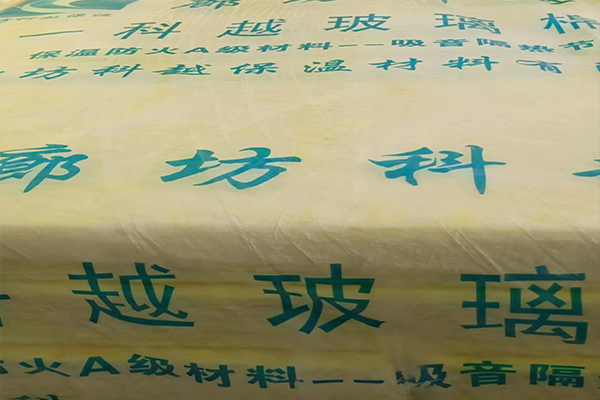 一科越玻璃棉
保温防火A级材料--吸音隔热节
廊坊科越保温材料有
廊坊科
越玻璃
防火A级材料--吸音隔